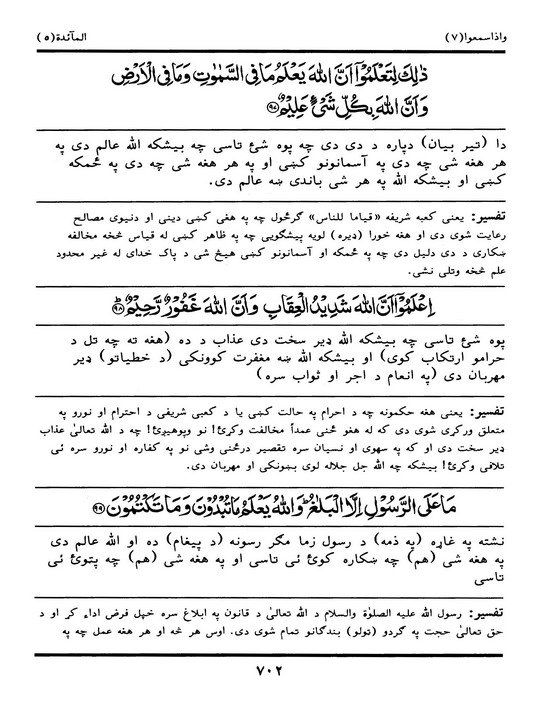 واذاسمعوا(٧) المآئدة(٥)
ذٰلِكَ لِتَعْلَمُوْٓا اَنَّ اللّٰهَ يَعْلَمُ مَا فِى السَّمٰوٰتِ وَمَا فِى الْاَرْضِ
وَاَنَّ اللّٰهَ بِكُلِّ شَىْءٍ عَلِيْمٌ ﴿٩٧﴾
دا (تير بيان) دپاره د دى دى چه پوه شئ تاسى چه بيشكه الله عالم دى په
هر هغه شى چه دى په آسمانونو كښى او په هر هغه شى چه دى په ځمكه
كښى او بيشكه الله په هر شى باندى ښه عالم دى.
تفسير: يعنى كعبه شريفه «قياما للناس» ګرځول چه په هغى كښى دينى او دنيوى مصالح
رعايت شوى دى او هغه خورا (ډيره) لويه پيشګويى چه په ظاهر كښى له قياس څخه مخالفه
ښكارى د دى دليل دى چه په ځمكه او آسمانونو كښى هيڅ شى د پاک خداى له غير محدود
علم څخه وتلى نشى.
اِعْلَمُوْٓا اَنَّ اللّٰهَ شَدِيْدُ الْعِقَابِ وَاَنَّ اللّٰهَ غَفُوْرٌ رَّحِيْمٌ ﴿٩٨﴾
پوه شئ تاسى چه بيشكه الله ډير سخت دى عذاب د ده (هغه ته چه تل د
حرامو ارتكاب كوى) او بيشكه الله ښه مغفرت كوونكى (د خطياتو) ډير
مهربان دى (په انعام د اجر او ثواب سره)
تفسير: يعنى هغه حكمونه چه د احرام په حالت كښى يا د كعبى شريفى د احترام او نورو په
متعلق وركړى شوى دى كه له هغو ځنى عمداً مخالفت وكړئ! نو وپوهيږئ! چه د الله تعالىٰ عذاب
ډير سخت دى او كه په سهوى او نسيان سره تقصير درځنى وشى نو په كفاره او نورو سره ئى
تلافى وكړئ! بيشكه چه الله جل جلاله لوى بښونكى او مهربان دى.
مَا عَلَى الرَّسُوْلِ اِلَّا الْبَلٰغُ ؕ وَاللّٰهُ يَعْلَمُ مَا تُبْدُوْنَ وَمَا تَكْتُمُوْنَ ﴿٩٩﴾
نشته په غاړه (په ذمه) د رسول زما مګر رسونه (د پيغام) ده او الله عالم دى
په هغه شى (هم) چه ښكاره كوئ ئى تاسى او په هغه شى (هم) چه پتوئ ئى
تاسى
تفسير: رسول الله عليه الصلوٰة والسلام د الله تعالىٰ د قانون په ابلاغ سره خپل فرض اداء كړ او د
حق تعالىٰ حجت په ګردو (ټولو) بندګانو تمام شوى دى. اوس هر څه او هر هغه عمل چه په
٧٠٢